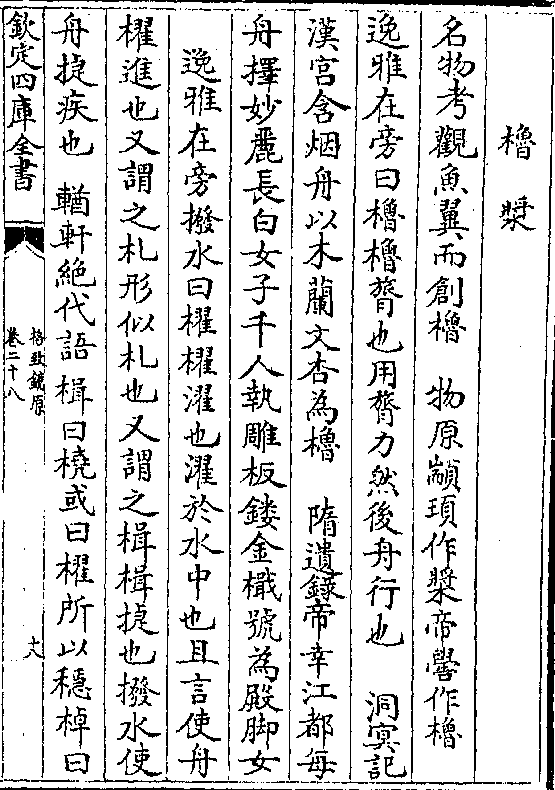 櫓槳
名物考觀魚翼而創櫓　物原顓頊作槳帝嚳作櫓
逸雅在旁曰櫓櫓膂也用膂力然後舟行也　洞冥記
漢宮含烟舟以木蘭文杏為櫓　隋遺録帝幸江都每
舟擇妙麗長白女子千人執雕板鏤金檝號為殿脚女
逸雅在旁撥水曰櫂櫂濯也濯於水中也且言使舟
櫂進也又謂之札形似札也又謂之楫楫捷也撥水使
舟捷疾也　輶軒絶代語楫曰橈或曰櫂所以穩棹曰
欽定四庫全書
格致鏡原
卷二十八
六